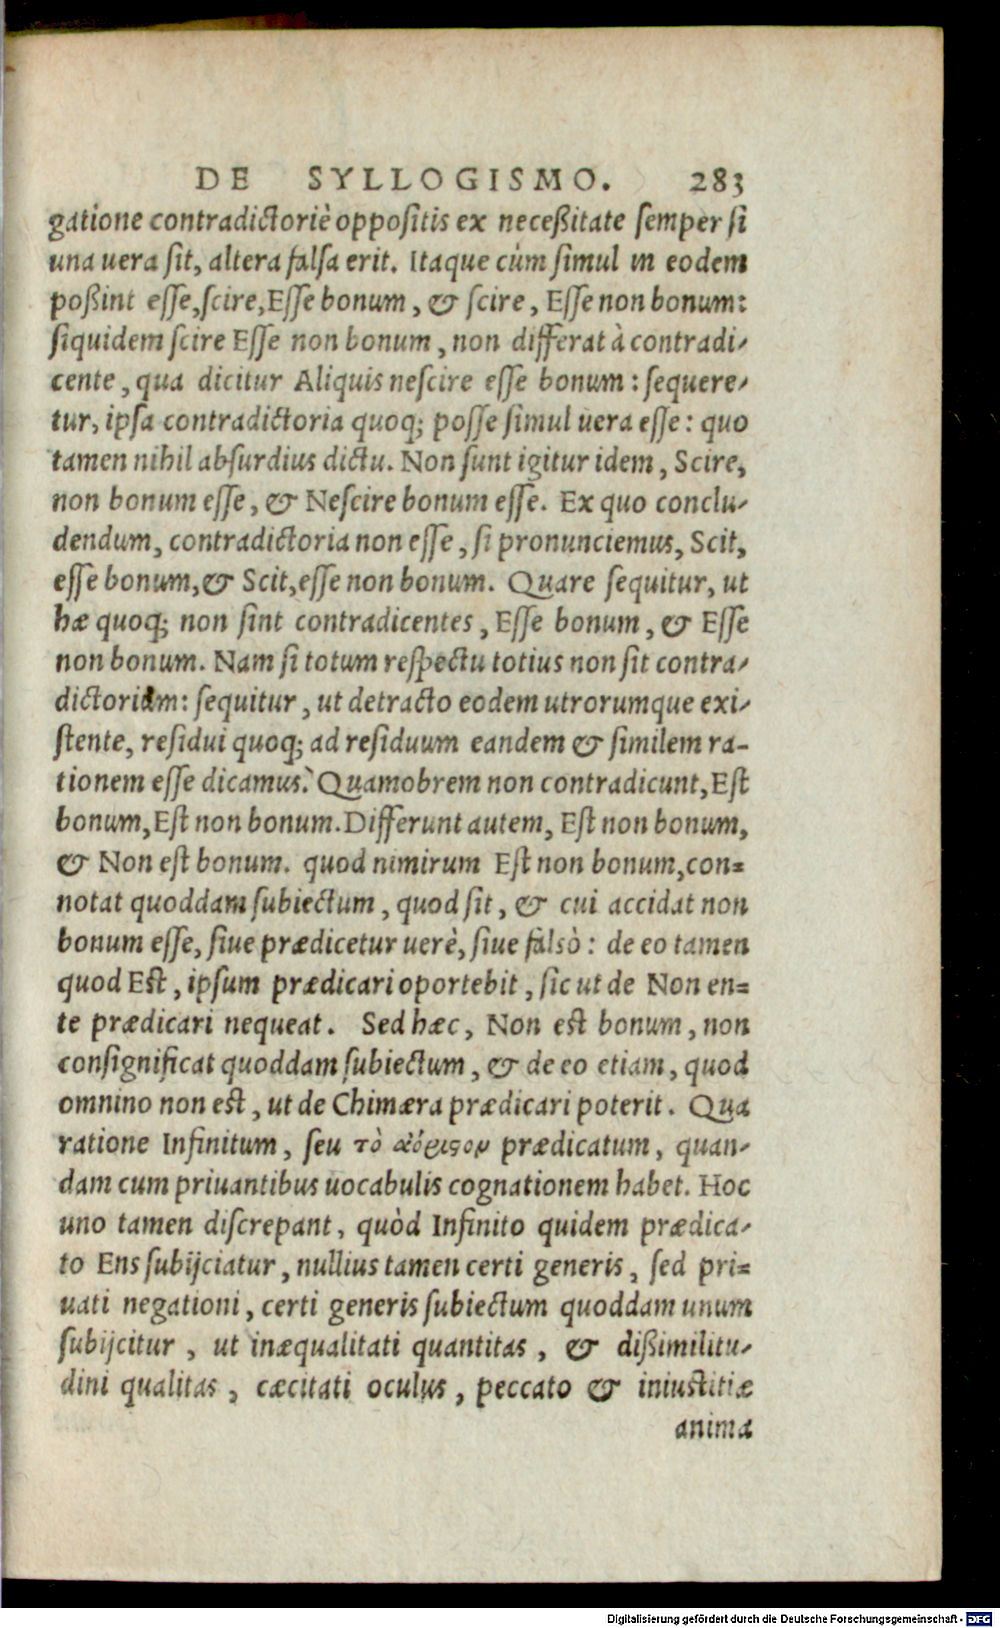 DE SYLLOGISMO. 283
gatione contradictoriè oppositis ex neceßitate semper si
una uera sit, altera falsa erit. Itaque cùm simul in eodem
poßint esse, scire, Esse bonum, & scire, Esse non bonum:
siquidem scire Esse non bonum, non differat à contradi-
cente, qua dicitur Aliquis nescire esse bonum: sequere-
tur, ipsa contradictoria quoq; posse simul uera esse: quo
tamen nihil absurdius dictu. Non sunt igitur idem, Scire,
non bonum esse, & Nescire bonum esse. Ex quo conclu-
dendum, contradictoria non esse, si pronunciemus, Scit,
esse bonum, & Scit, esse non bonum. Quare sequitur, ut
hæ quoq; non sint contradicentes, Esse bonum, & Esse
non bonum. Nam si totum respectu totius non sit contra-
dictorium: sequitur, ut detracto eodem utrorumque exi-
stente, residui quoq; ad residuum eandem & similem ra-
tionem esse dicamus. Quamobrem non contradicunt, Est
bonum, Est non bonum. Differunt autem, Est non bonum,
& Non est bonum. quod nimirum Est non bonum, con=
notat quoddam subiectum, quod sit, & cui accidat non
bonum esse, siue prædicetur uerè, siue falsò: de eo tamen
quod Est, ipsum prædicari oportebit, sic ut de Non en=
te prædicari nequeat. Sed hæc, Non est bonum, non
consignificat quoddam subiectum, & de eo etiam, quod
omnino non est, ut de Chimæra prædicari poterit. Qua
ratione Infinitum, seu τὸ ἀόριστον prædicatum, quan-
dam cum priuantibus uocabulis cognationem habet. Hoc
uno tamen discrepant, quòd Infinito quidem prædica-
to Ens subijciatur, nullius tamen certi generis, sed pri=
uati negationi, certi generis subiectum quoddam unum
subijcitur, ut inæqualitati quantitas, & dißimilitu-
dini qualitas, cæcitati oculus, peccato & iniustitiæ
anima
Digitalisierung gefördert durch die Deutsche Forschungsgemeinschaft - DFG